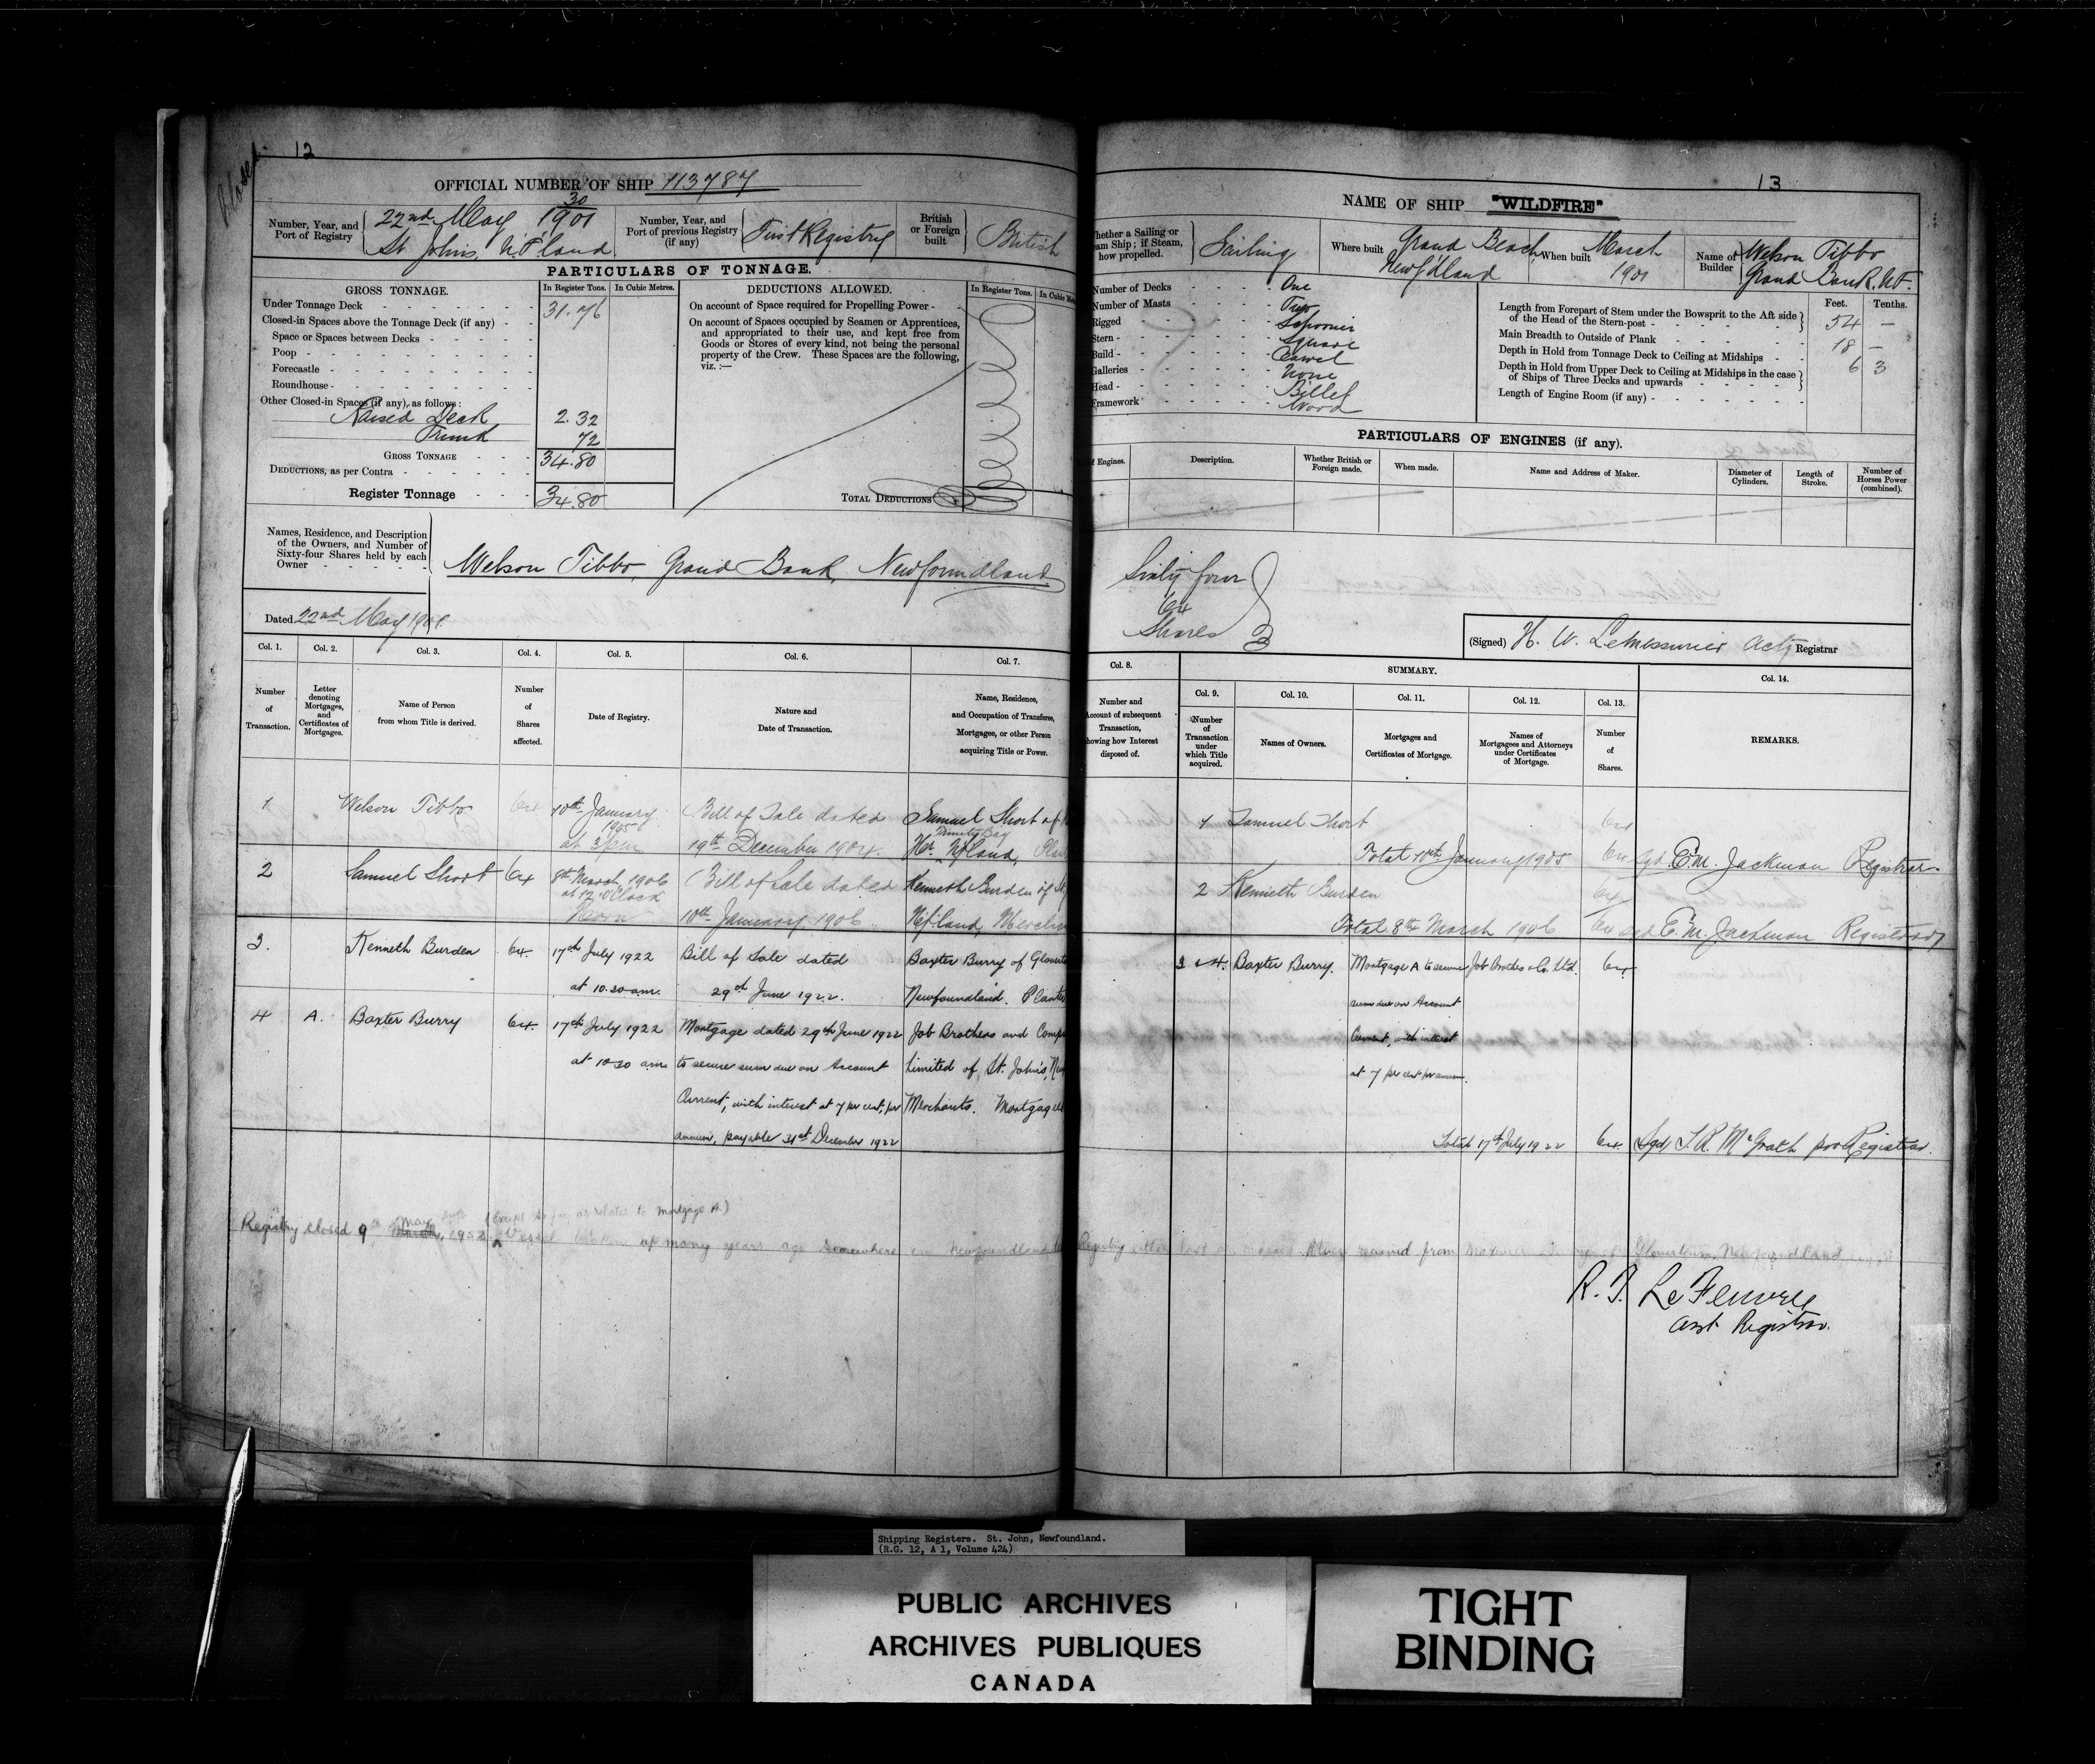 Closed
12
OFFICIAL NUMBER OF SHIP 113787
Number, Year, and Port of Registry
30
22nd May 1901
St Johns, N.F'land
Number, Year, and Port of previous Registry (if any)
First Registry
British or Foreign built
British
PARTICULARS OF TONNAGE.
GROSS TONNAGE.
In Register Tons.
In Cubic Metres.
DEDUCTIONS ALLOWED.
In Register Tons.
Under Tonnage Deck
31.76
Closed-in Spaces above the Tonnage Deck (if any)
Space or Spaces between Decks
Poop
Forecastle
Roundhouse
Other Closed-in Spaces (if any), as follows:
Raised Deck 2.32
Trunk 72
GROSS TONNAGE 34.80
DEDUCTIONS, as per Contra
Register Tonnage 34.80
On account of Space required for Propelling Power
On account of Spaces occupied by Seamen or Apprentices,
and appropriated to their use, and kept free from
Goods or Stores of every kind, not being the personal
property of the Crew. These Spaces are the following,
viz. :—
TOTAL DEDUCTIONS
Names, Residence, and Description
of the Owners, and Number of
Sixty-four Shares held by each
Owner
Welson Tibbo, Grand Bank, Newfoundland
Dated 22nd May 1901
Col. 1.
Col. 2.
Col. 3.
Col. 4.
Col. 5.
Col. 6.
Col. 7.
Number of Transaction.
Letter denoting Mortgages, and Certificates of Mortgages.
Name of Person from whom Title is derived.
Number of Shares affected.
Date of Registry.
Nature and Date of Transaction.
Name, Residence, and Occupation of Transferee, Mortgagee, or other Person acquiring Title or Power.
1 Welson Tibbo 64 10th January Bill of Sale dated Samuel Short of
1905 Trinity Bay
at 3 pm 19th December 1904. Hr. Nfland,
2 Samuel Short 64 8th March 1906 Bill of Sale dated Kenneth Burden of
at 12 O'Clock
Noon 10th January 1906 Nfland,
3. Kenneth Burden 64. 17th July 1922 Bill of Sale dated Baxter Burry of
at 10.30 am. 29th June 1922. Newfoundland.
4 A. Baxter Burry 64. 17th July 1922 Mortgage dated 29th June 1922 Job Brothers and
at 10.30 am to secure sum due on Account Limited of St. John's,
Current, with interest at 7 per cent, per Merchants.
annum, payable 31st December 1922
(Except so far as relates to mortgage A.)
May
Registry closed 9th March, 1952 Vessel up many years ago somewhere in Newfoundland
13
NAME OF SHIP "WILDFIRE"
Whether a Sailing or Steam Ship; if Steam, how propelled.
Sailing
Where built
Grand Beach
Newf'dland
When built
March
1901
Name of Builder
Welson Tibbo
Grand Bank. N.F.
Number of Decks One
Number of Masts Two
Rigged Schooner
Stern Square
Build Carvel
Galleries None
Head Billet
Framework Wood
Feet. Tenths.
Length from Forepart of Stem under the Bowsprit to the Aft side
of the Head of the Stern-post 54 —
Main Breadth to Outside of Plank 18 —
Depth in Hold from Tonnage Deck to Ceiling at Midships 6 3
Depth in Hold from Upper Deck to Ceiling at Midships in the case
of Ships of Three Decks and upwards
Length of Engine Room (if any)
PARTICULARS OF ENGINES (if any).
of Engines.
Description.
Whether British or Foreign made.
When made.
Name and Address of Maker.
Diameter of Cylinders.
Length of Stroke.
Number of Horses Power (combined).
Sixty four
64
Shares
(Signed) H. W. LeMessurier Actg Registrar
Col. 8.
SUMMARY.
Col. 14.
Col. 9.
Col. 10.
Col. 11.
Col. 12.
Col. 13.
Number and Account of subsequent Transaction, showing how Interest disposed of.
Number of Transaction under which Title acquired.
Names of Owners.
Mortgages and Certificates of Mortgage.
Names of Mortgagees and Attorneys under Certificates of Mortgage.
Number of Shares.
REMARKS.
1 Samuel Short 64
Total 10th January 1905 64 Sgd. E.M. Jackman Registrar.
2 Kenneth Burden 64
Total 8th March 1906 64 Sgd E.M. Jackman Registrar
3 & 4. Baxter Burry. Mortgage A to secure Job Brothers & Co. Ltd. 64
sum due on Account
Current, with interest
at 7 per cent per annum.
Total 17th July 1922 64. Sgd J. R. McGrath pro Registrar.
Registry received from Glovertown, Newfoundland
Asst Registrar.
Shipping Registers. St. John, Newfoundland.
(R.G. 12, A 1, Volume 424)
PUBLIC ARCHIVES
ARCHIVES PUBLIQUES
CANADA
TIGHT
BINDING